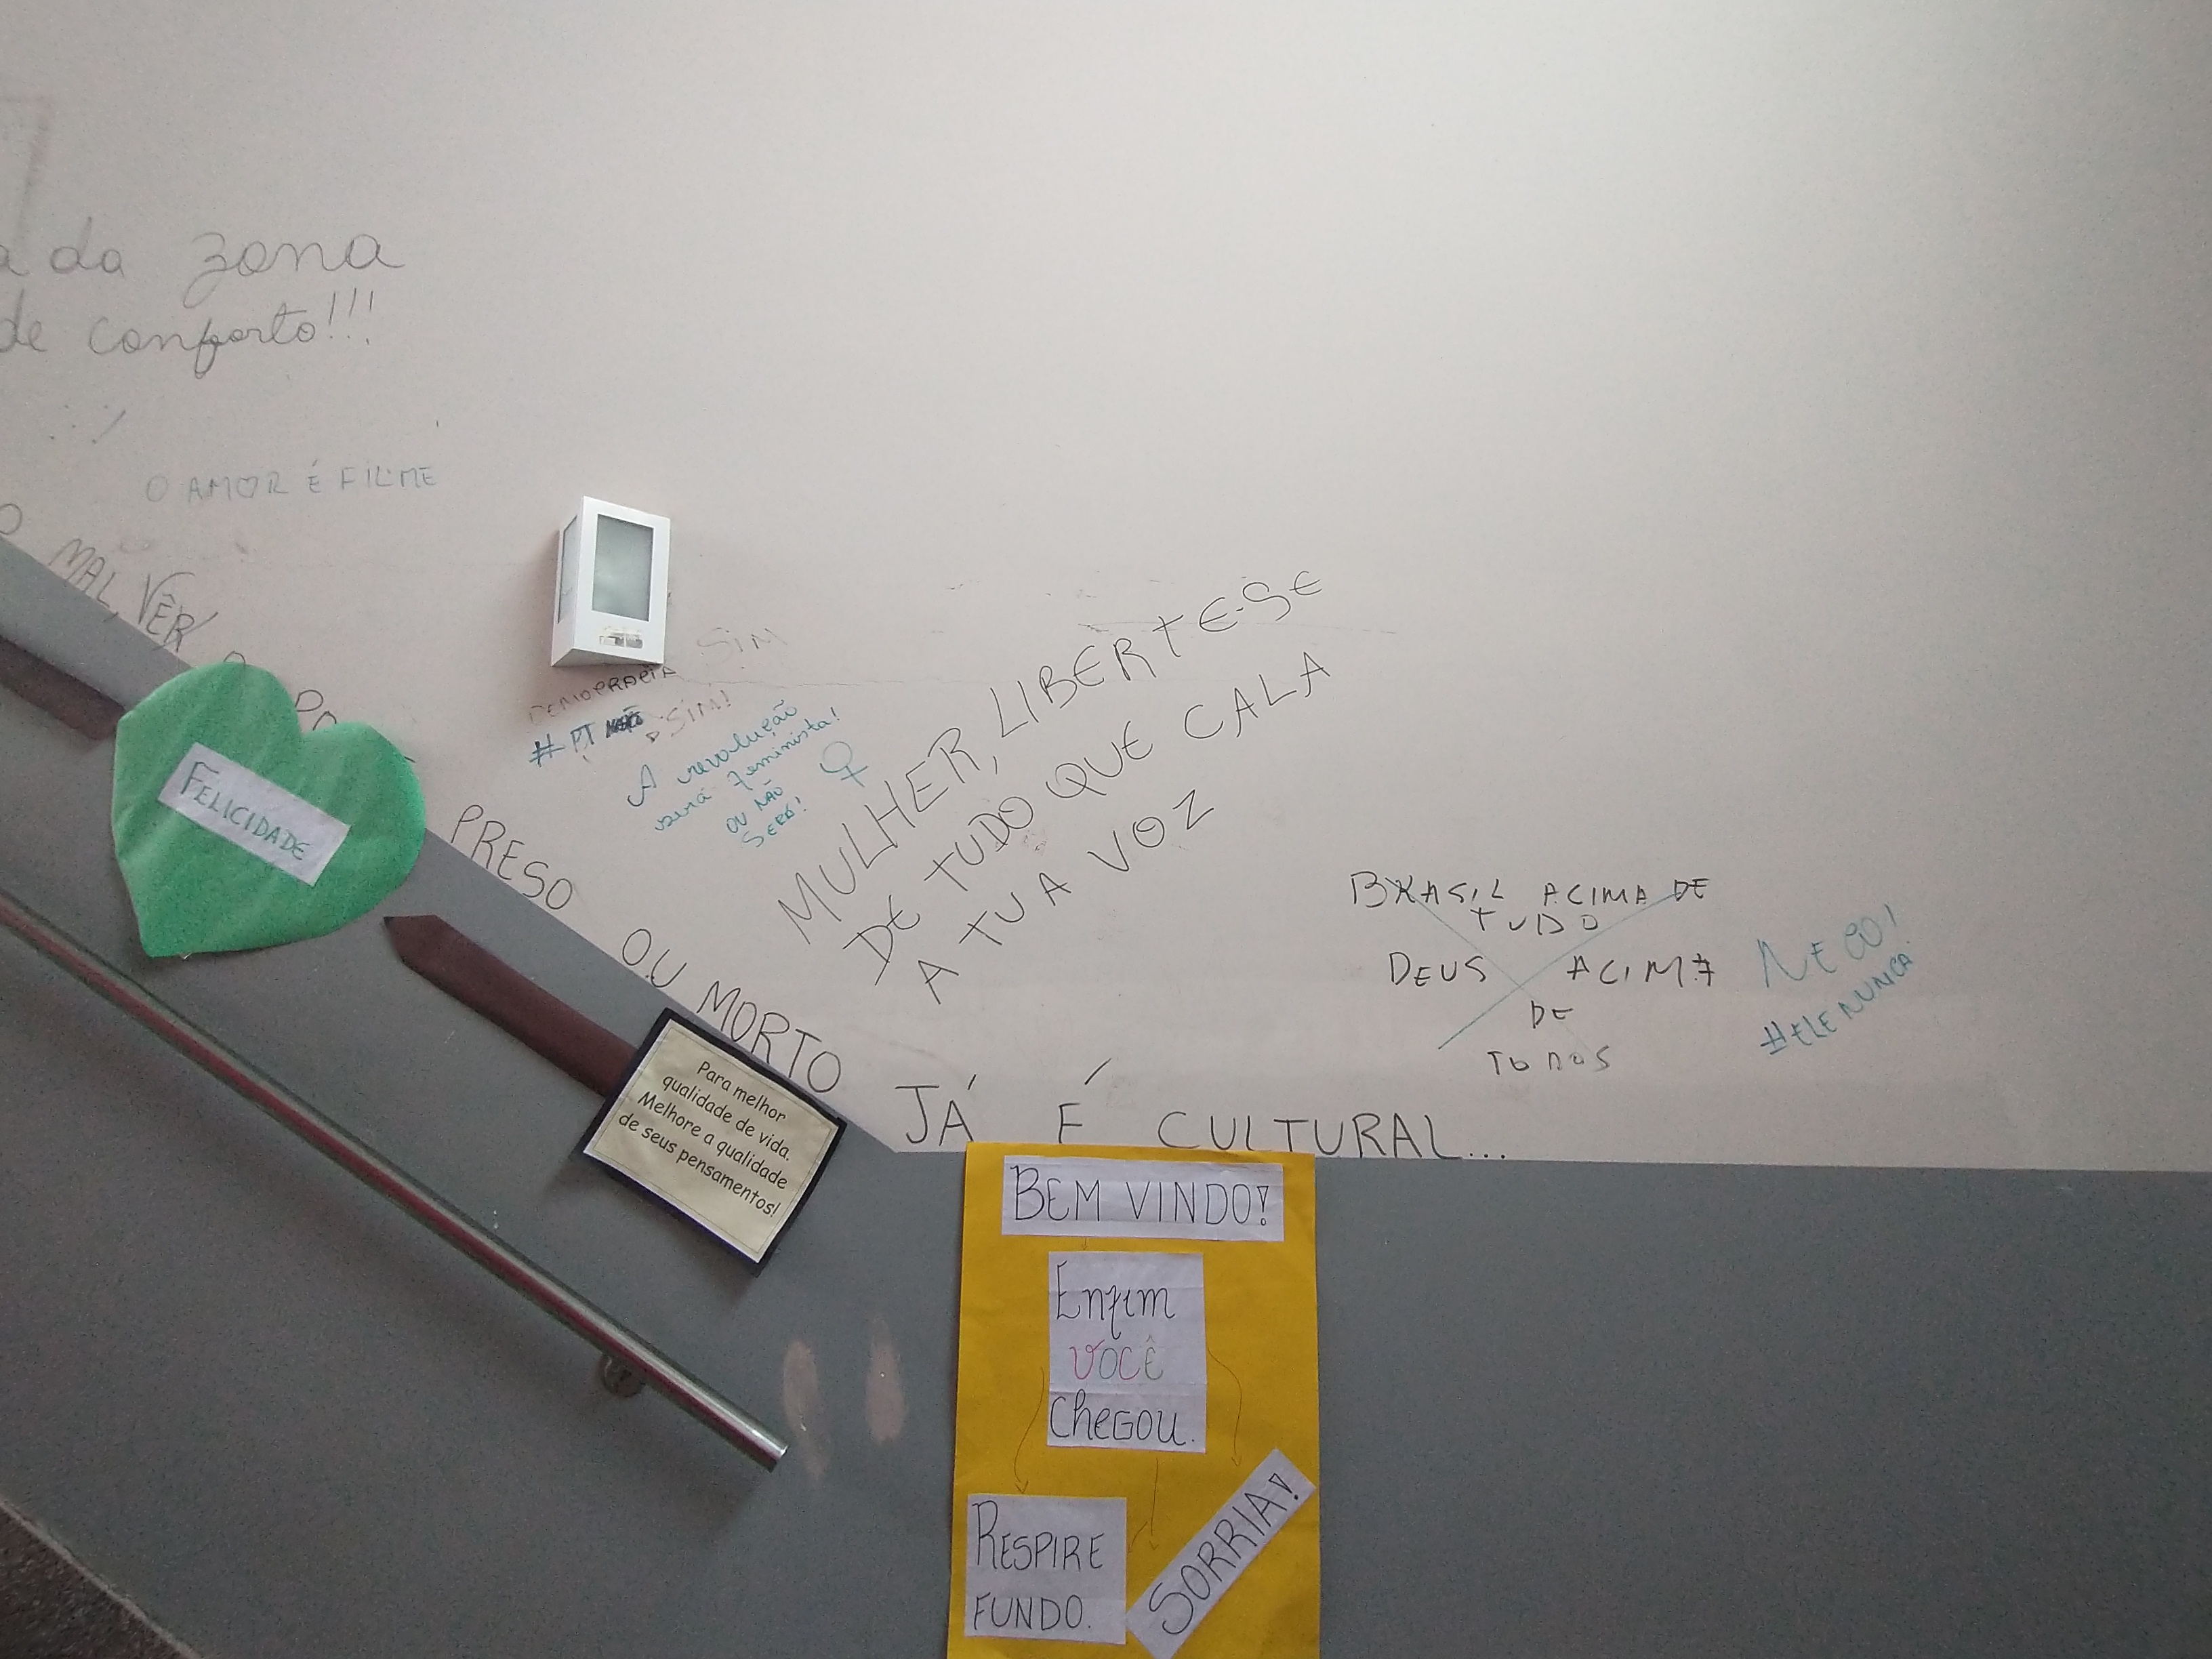 da zona
de conforto!!!
O AMOR É FILME
MAL, VÊR
PRESO OU MORTO JÁ É CULTURAL...
FELICIDADE
SIM
DEMOCRACIA
# PT NÃO SIM!
A revolução
será feminista!
OU NÃO
SERÁ!
MULHER, LIBERTE-SE
DE TUDO QUE CALA
A TUA VOZ
BRASIL ACIMA DE
TUDO
DEUS ACIMA
DE
TODOS
#ELENUNCA
Para melhor
qualidade de vida.
Melhore a qualidade
de seus pensamentos!
BEM VINDO!
Enfim
você
CheGOU.
RESPIRE
FUNDO.
SORRIA!